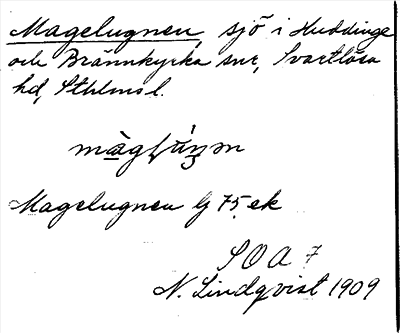 Magelugnen, sjö i Huddinge
och Brännkyrka snr, Svartlösa
hd, Sthlms l.
Magelugnen lj 75. ek
SOA 7
N. Lindqvist 1909